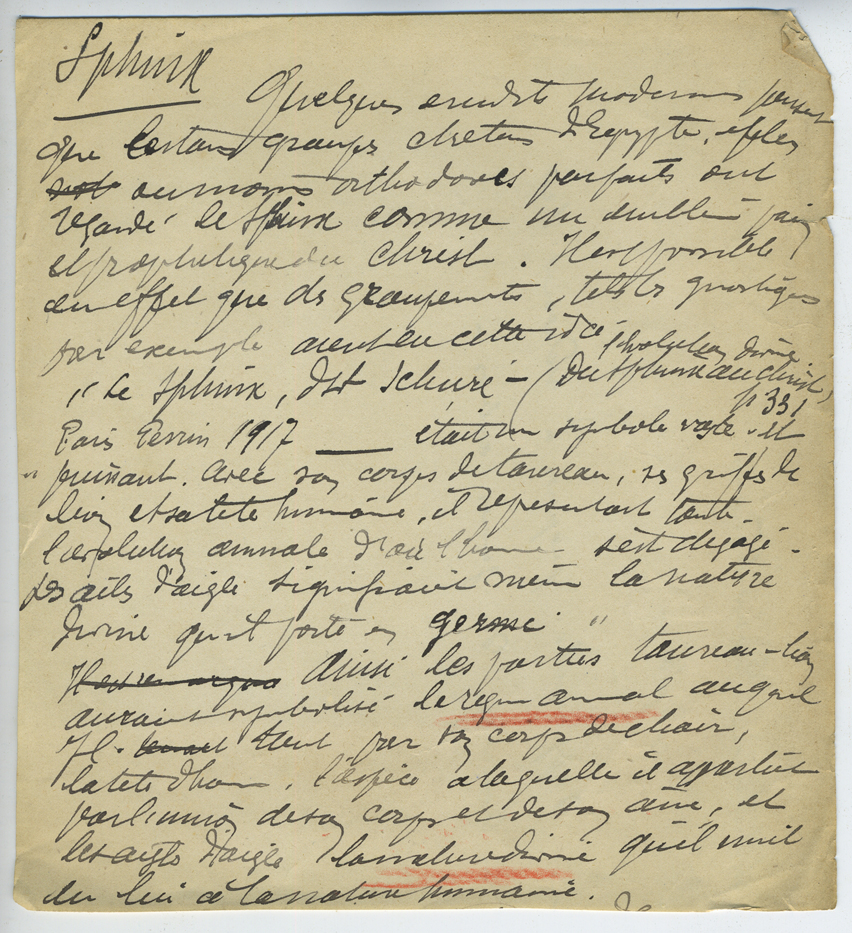 Sphinx
Quelques erudits modernes pensent
que certains groupes chretiens d'Egypte,
au moins orthodoxes parfaits ont
regardé le Sphinx comme un emblème
et prophetique du Christ. Il est possible
en effet que des groupements, tels les gnostiques
par exemple aient eu cette idée
" Le Sphinx, dit Schuré - (
l'evolution divine
du Sphinx au Christ)
p 331
Paris Perrin 1917 était un symbole vaste et
" puissant. Avec son corps de taureau, ses griffes de
lion et sa tete humaine, il representait toute
l'evolution animale d'où l'homme s'est dégagé.
Les ailes d'aigle signifiaient même la nature
divine qu'il porte en germe "
ainsi les parties taureau-lion
auraient symbolisé le regne animal auquel
Il tient par son corps de chair,
la tete d'homme, l'espèce a laquelle il appartient
par l'union de son corps et de son âme, et
les aigles d'aigle la nature divine qu'il unit
en lui à la nature humaine.